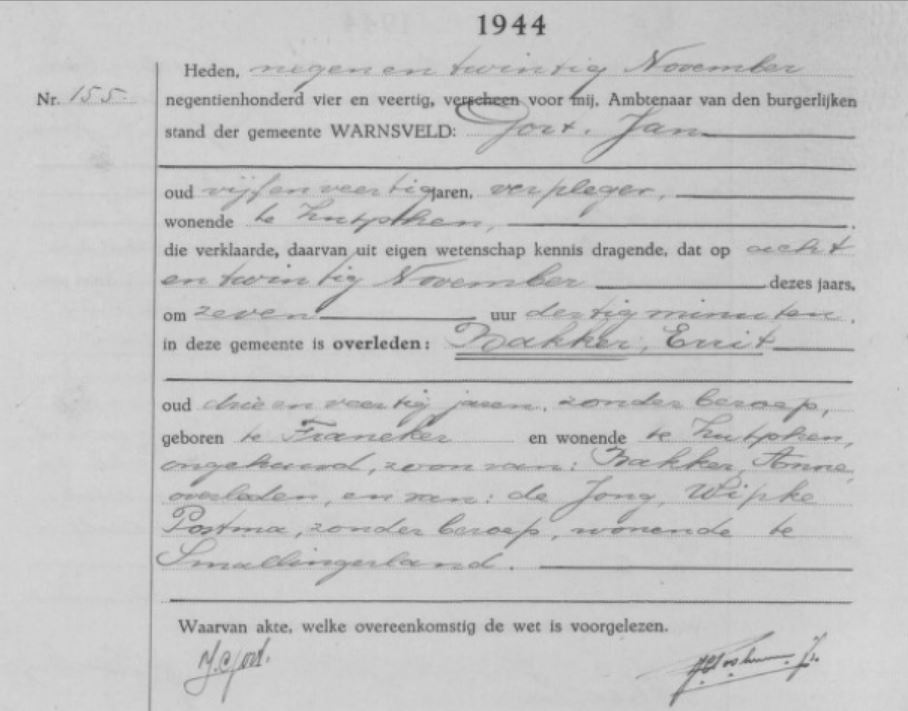 1944
Heden, negen en twintig November
Nr. 155.
negentienhonderd vier en veertig, verscheen voor mij, Ambtenaar van den burgerlijken
stand der gemeente WARNSVELD: Gort, Jan
oud vijf en veertig jaren, verpleger,
wonende te Zutphen,
die verklaarde, daarvan uit eigen wetenschap kennis dragende, dat op acht
en twintig November dezes jaars,
om zeven uur dertig minuten,
in deze gemeente is overleden: Bakker, Errit
oud drie en veertig jaren, zonder beroep,
geboren te Franeker en wonende te Zutphen,
ongehuwd, zoon van: Bakker, Anne,
overleden, en van: de Jong, Wipke
Postma, zonder beroep, wonende te
Smallingerland.
Waarvan akte, welke overeenkomstig de wet is voorgelezen.
J. Gort.